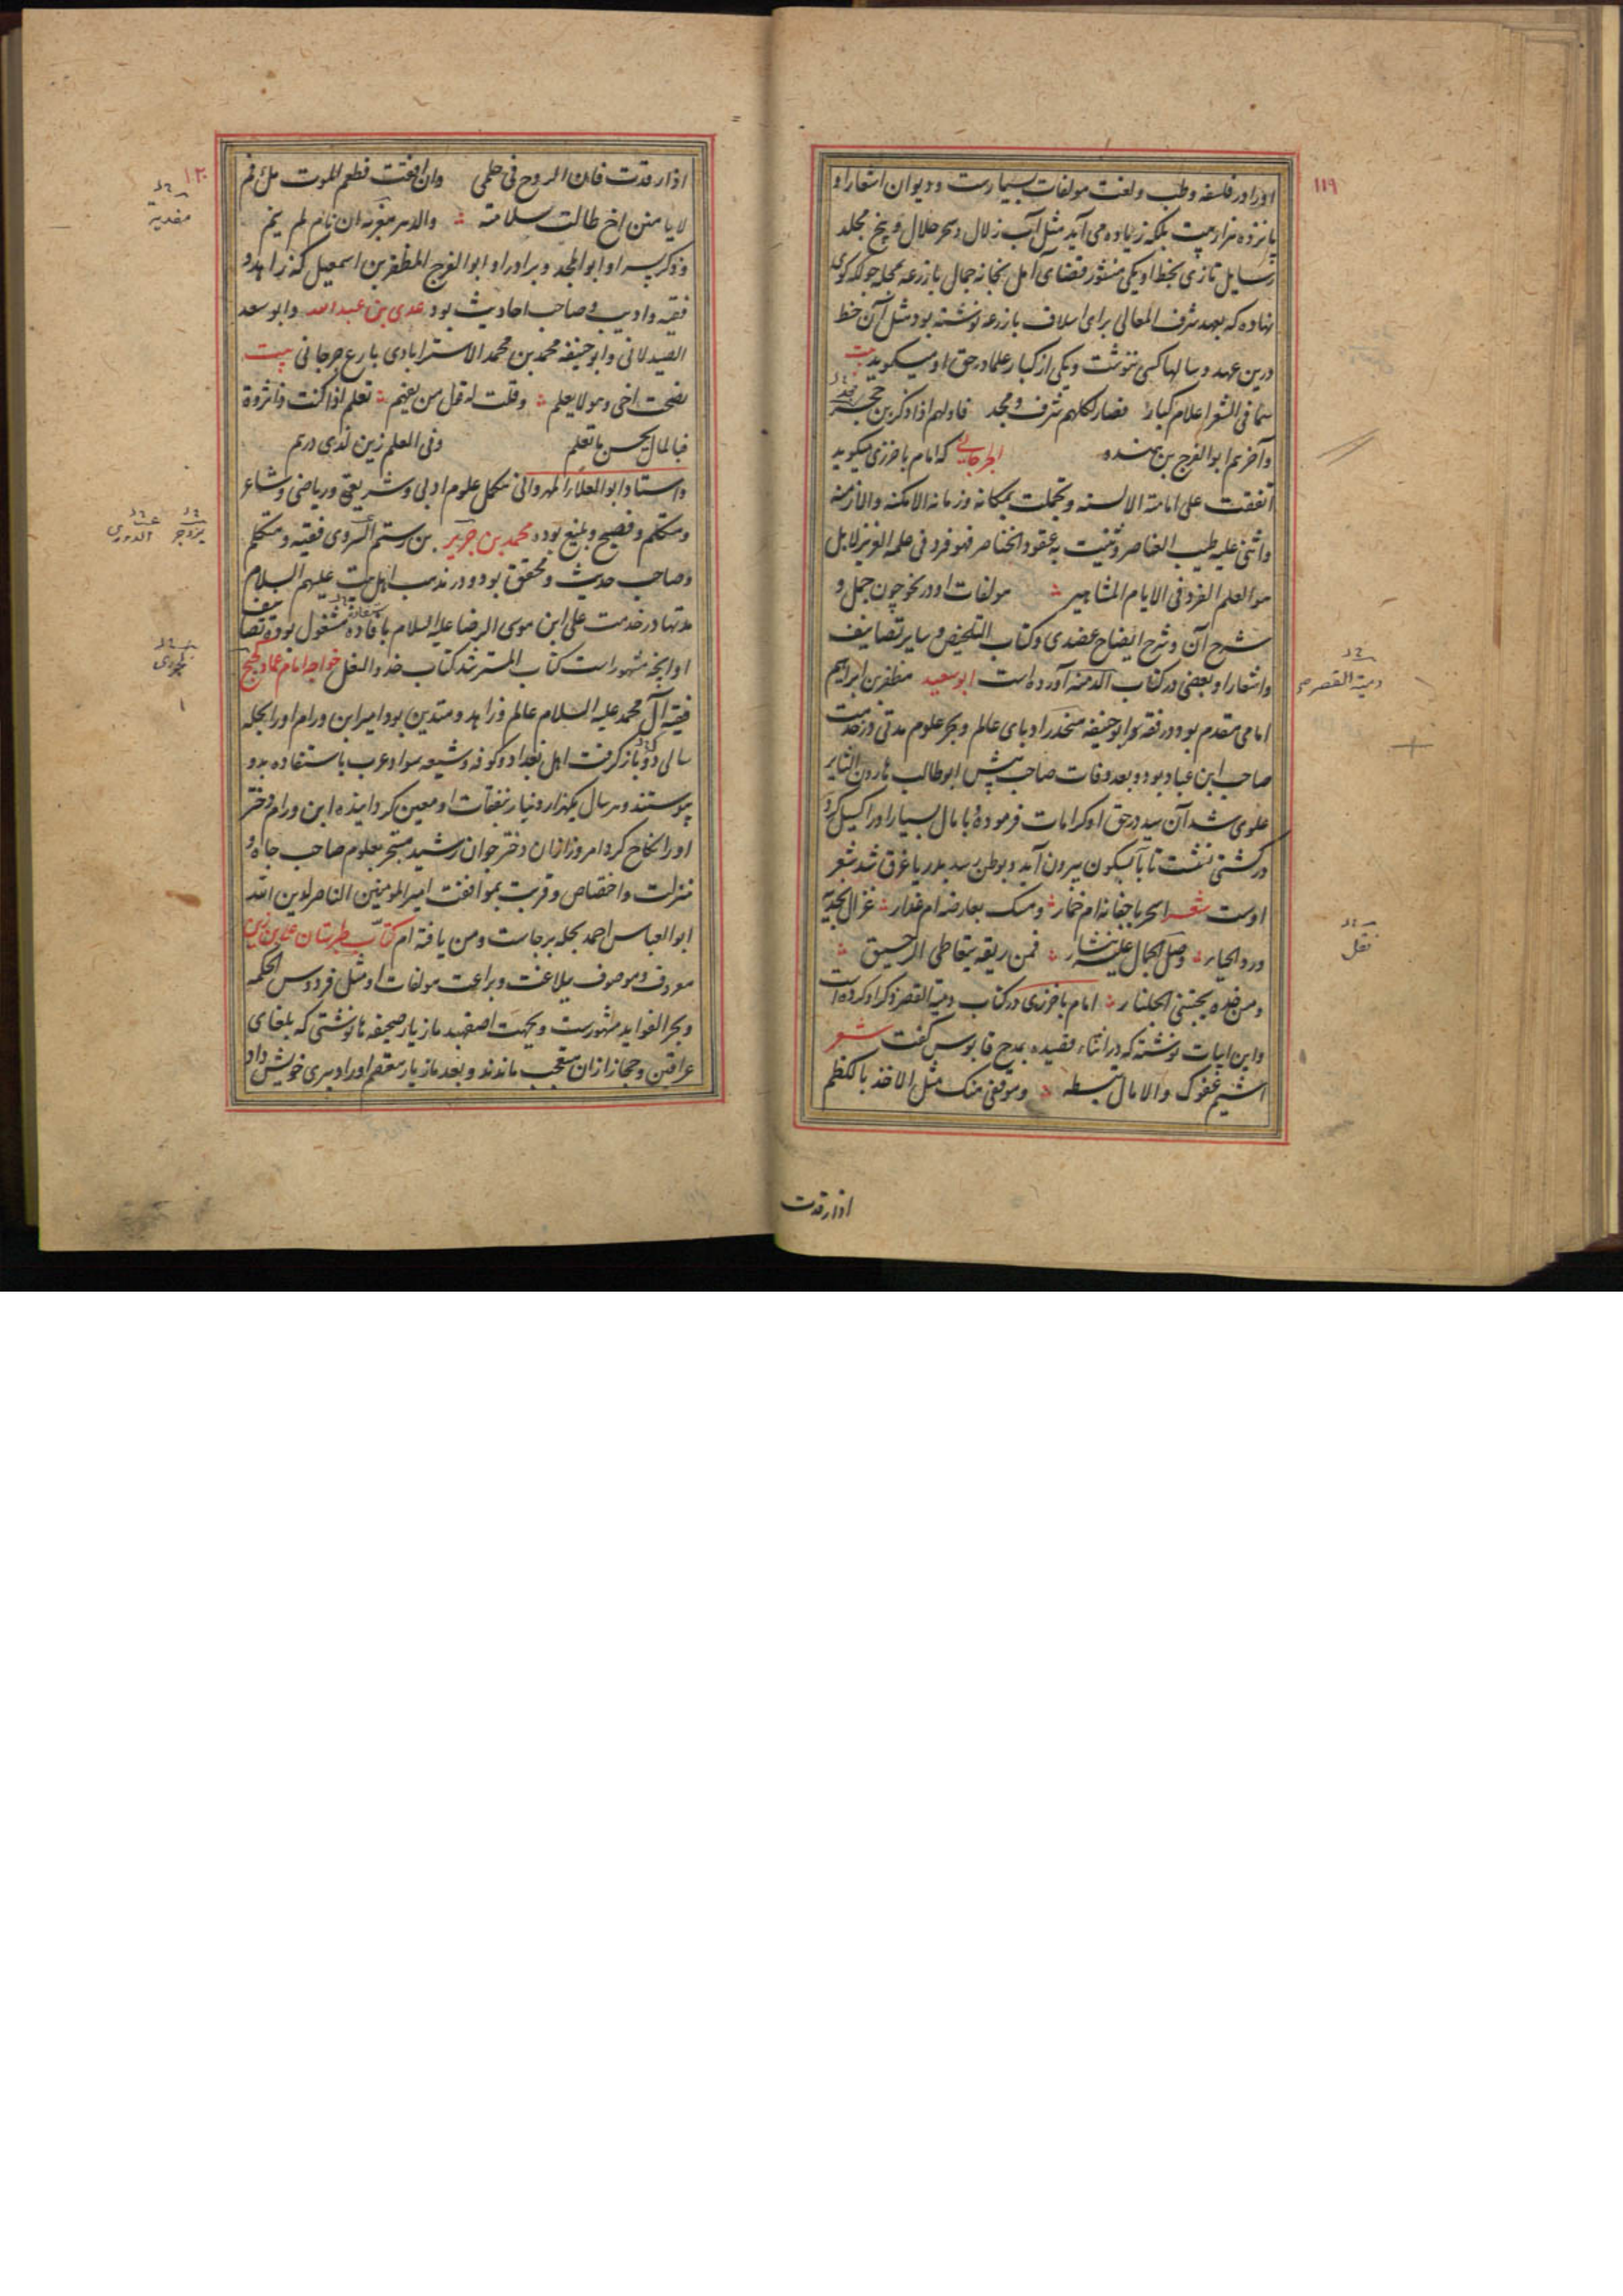 ۱۱۹
اورا در فلسفه و طب و لغت مولفات بسیارست و دیوان اشعار او
پانزده هزار بیت بلکه زیاده می آید مثل آب زلال و سحر حلال و پنج مجلد
رسایل تازی بخط او یکی منشور قضای آمل بخانه جمال بازرعه بمحله جولکه کوی
نهاده که بعهد شرف المعالی برای اسلاف بازرعه نوشته بود مثل آن خط
درین عهد و سالها کسی ننوشت و یکی از کبار علما در حق او میگوید بیت
سما فی الشعر اعلام کبار فصار لکلهم شرف و مجد فاولهم اذا ذکر بن حجر
وآخرهم ابوالفرج بن هنده الجرجانی که امام باخرزی میگوید
اتفقت علی امامته الالسنه و تجملت بمکانه و زمانه الامکنه والازمنه
واثنی علیه طیب العناصر وثنیت به عقود الخناصر فهو فرد فی علمه الغزیز لا بل
هو العلم الفرد فی الایام المشاهیر مولفات او در نحو چون جمل و
شرح آن و شرح ایضاح عضدی و کتاب التلخیص و سایر تصانیف
واشعار او بعضی در کتاب الدمنه آورده است ابو سعید مظفر بن ابراهیم
امامی مقدم بود در فقه برابوحنیفه منخدر ادبای عالم و بحر علوم مدتی در خدمت
صاحب ابن عباد بود و بعد وفات صاحب پیش ابوطالب هارون الثایر
علوی شد آن سید در حق او کرامات فرموده و با مال بسیار اورا کسیل کرد
در کشتی نشست تا بآبسکون بیرون آید و بوطن رسد بدریا غرق شد شعر
اوست شعر اسحر باجفانه ام خمار ومسک بعارضه ام غدار غزال بخدیه
ورد الحیا وصل الجمال علیه نثار فمن ریقه یتعاطی الرحیق
ومن خده یجتنی الجلنار امام باخرزی در کتاب دمیة القصر ذکر او کرده است
واین ابیات نوشته که در اثناء قصیده بمدح قابوس گفت شعر
اشیم عفوک والامال تبسطه وموقفی منک مثل الاخذ بالکظم
دمیة القصر
نقل
اذا رقدت
۱۲۰
اذا رقدت فان الروح فی حلمی وان افقت فطعم الموت ملء فم
لا یامنن اخ طالت سلامته والدهر مغریه ان نام لم ینم
و ذکر پسر او ابو المجد و برادر او ابوالفرج المظفر بن اسمعیل که زاهد و
فقیه وادیب و صاحب احادیث بود عدی بن عبدالله وابو سعد
الصیدلانی وابوحنیفه محمد بن محمد الاسترابادی بارع جرجانی بیت
نصحت اخی وهو لا یعلم وقلت له قول من یفهم تعلم اذا کنت ذا ثروة
فبالمال یحسن ما تعلم وفی العلم زین لذی درهم
واستاد ابو العلاء المهروانی مکمل علوم ادبی و شریعتی و ریاضی و شاعر
و متکلم و فصیح و بلیغ بود و محمد بن جریر بن رستم السروی فقیه و متکلم
و صاحب حدیث و محقق بود و در مذهب اهل بیت علیهم السلام
مدتها در خدمت علی ابن موسی الرضا علیه السلام بافاده مشغول بوده تصانیف
او آنچه مشهور است کتاب المسترشد کتاب حذو النعل خواجه امام عماد کجیج
فقیه آل محمد علیه السلام عالم و زاهد و متدین بود امیر ابن ورام اورا بحله
سالی دو باز گرفت اهل بغداد و کوفه و شیعه سواد عرب باستفاده بدو
پیوستند و هر سال یکهزار دینار نفقات او معین گردانیده ابن ورام دختر
اورا نکاح کرد امروز ازان دختر جوان رشید متبحر بعلوم صاحب جاه و
منزلت و اختصاص و قربت بموافقت امیر المومنین الناصر لدین الله
ابو العباس احمد بحله برجاست و من یافته ام کتاب طبرستان علی بن زین
معروف و موصوف ببلاغت و براعت مولفات او مثل فردوس الحکمه
و بحر الفواید مشهورست و بجهت اصفهبد مازیار صحیفه ها نوشتی که بلغای
عراقین و حجاز ازان متعجب ماندند و بعد مازیار معتصم اورا دبیری خویش داد
مفدیة